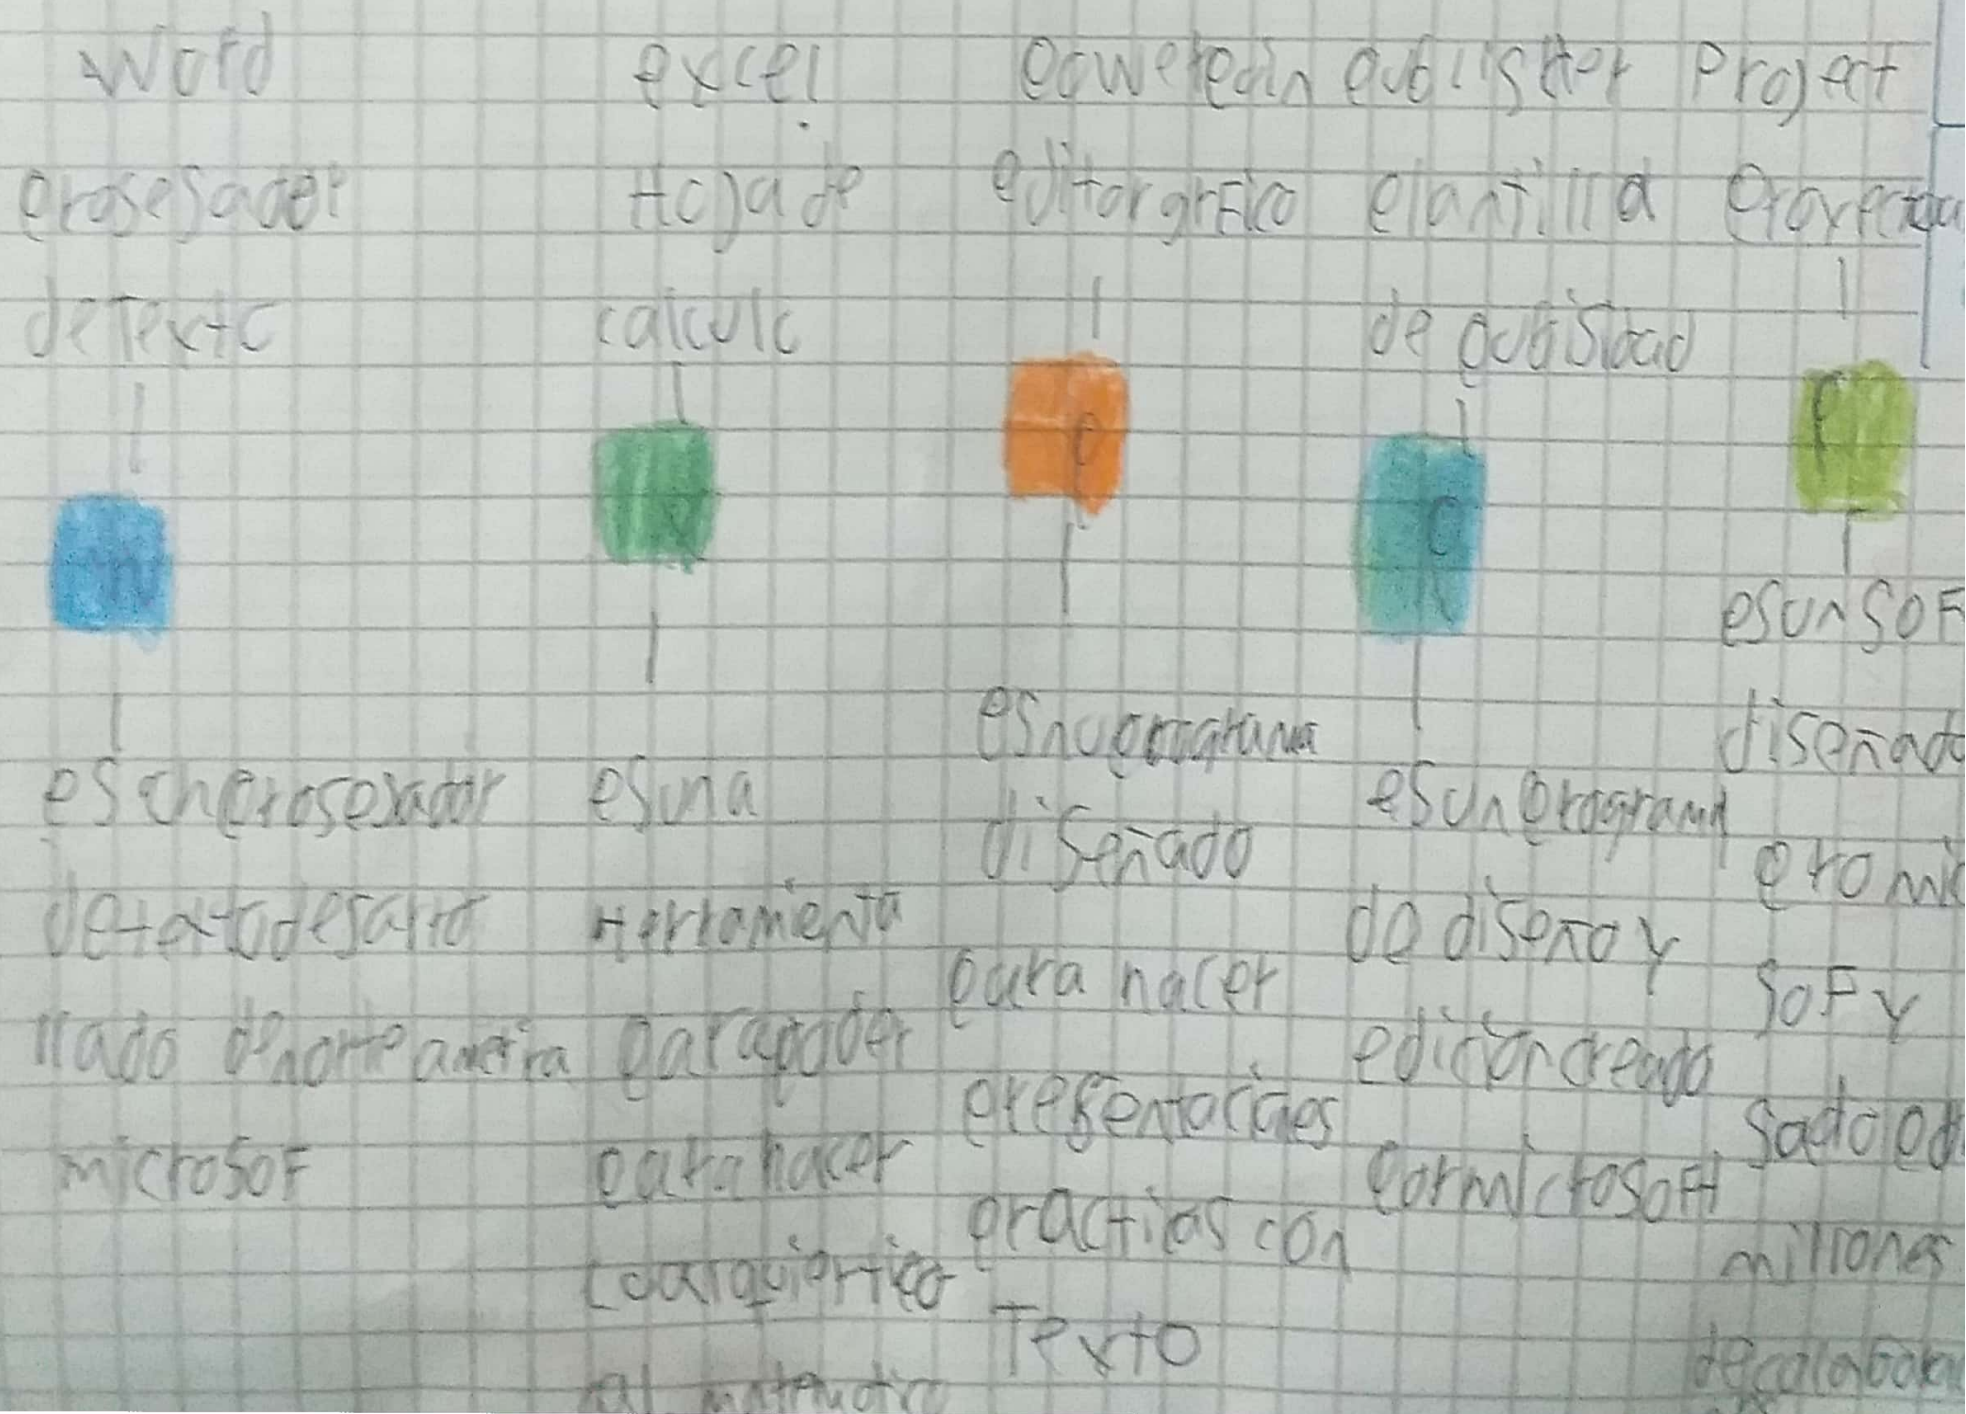 word
prosesador
de Texto
W
es un prosesador
de texto desarro
llado de norte america
microsof
excel
Hoja de
calculo
X
es una
Herramienta
para poder
para hacer
cualquier tipo
matematico
powerpoin
editor grfico
p
es nu programa
diseñado
para hacer
presentaciones
practicas con
Texto
publisher
plantilla
de publisidad
p
es un programa
de diseño y
edición creado
por microsoft
Project
P
es un sof
diseñado
pro mic
sof y
sado
millones